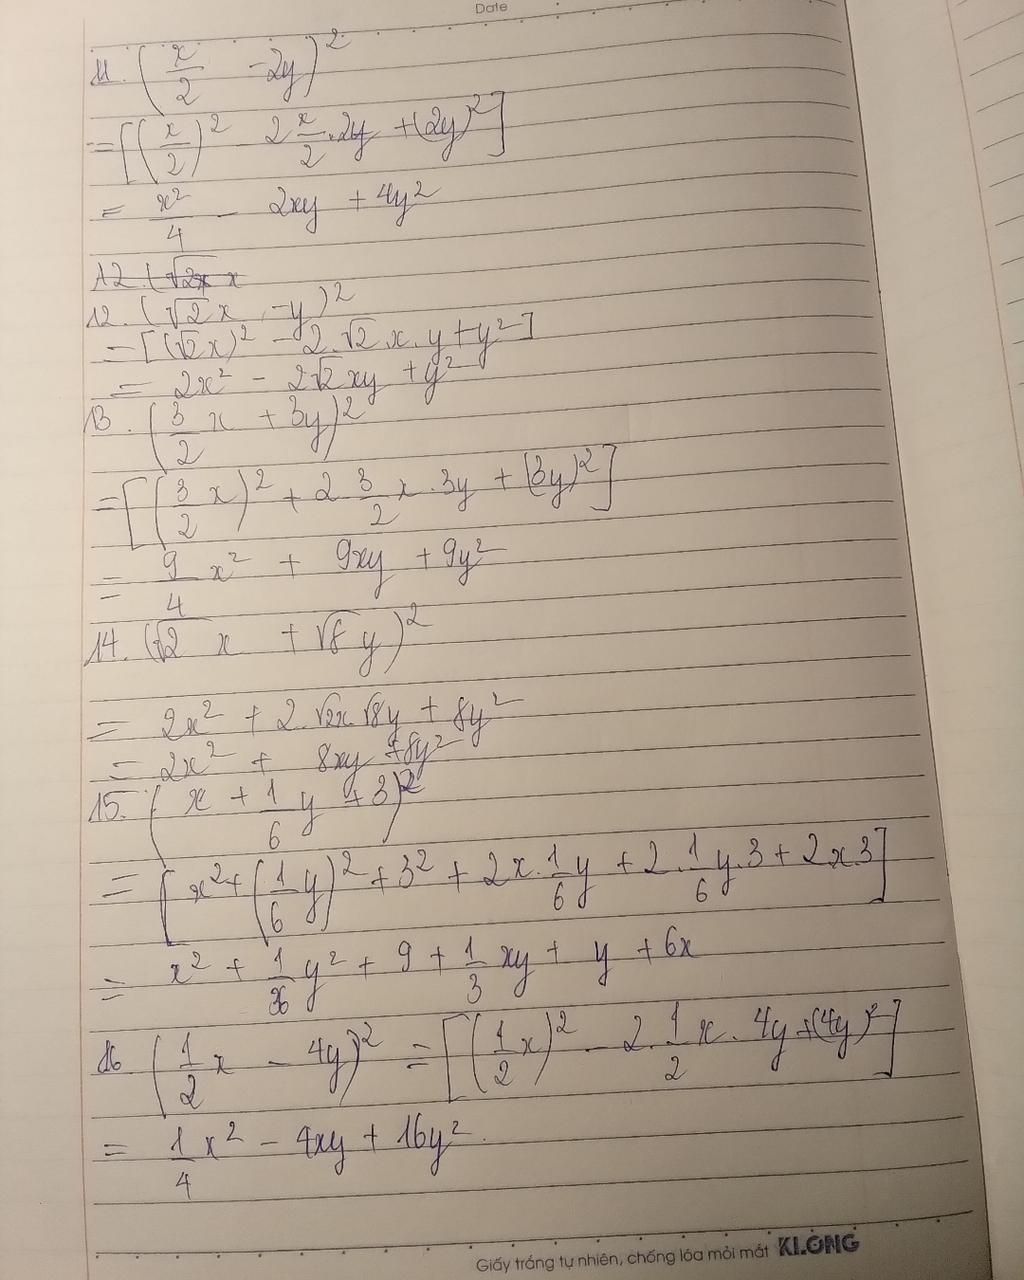 Date
11. (x/2 - 2y)²
= [(x/2)² - 2 x/2 . 2y + (2y)²]
= x²/4 - 2xy + 4y²
12. (√2x x
12. (√2 x - y)²
= [(√2 x)² - 2.√2.x.y + y²]
= 2x² - 2√2 xy + y²
13. (3/2 x + 3y)²
= [(3/2 x)² + 2 3/2 x . 3y + (3y)²]
= 9/4 x² + 9xy + 9y²
14. (√2 x + √8 y)²
= 2x² + 2.√2x.√8y + 8y²
= 2x² + 8xy + 8y²
15. (x + 1/6 y + 3)²
= [x² + (1/6 y)² + 3² + 2x . 1/6 y + 2 . 1/6 y . 3 + 2x.3]
= x² + 1/36 y² + 9 + 1/3 xy + y + 6x
16 (1/2 x - 4y)² = [(1/2 x)² - 2 . 1/2 x . 4y + (4y)²]
= 1/4 x² - 4xy + 16y².
Giấy trắng tự nhiên, chống lóa mỏi mắt KLONG